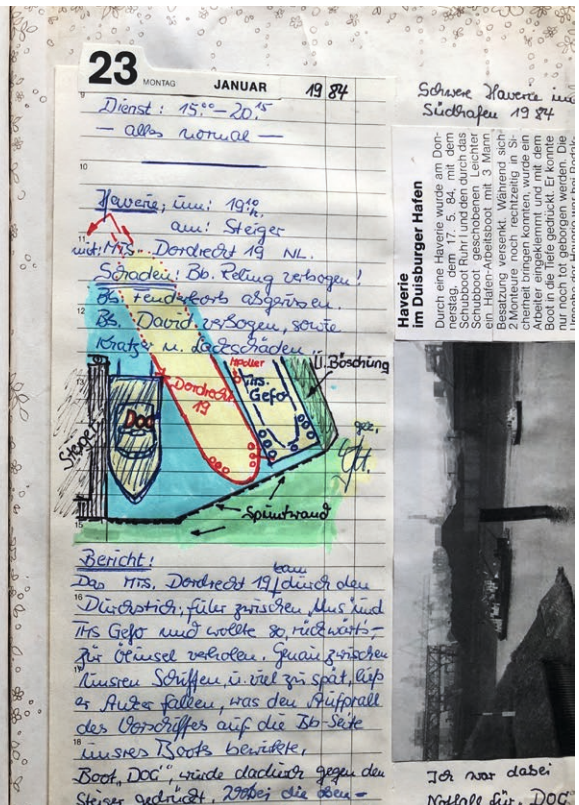 23 MONTAG JANUAR 1984
9
Dienst: 15.00 – 20.15
— alles normal —
10
Haverie; um: 19 10 h.
am: Steiger
11
mit: MTS. Dordrecht 19 NL.
Schaden: Bb. Reling verbogen!
Bb. Fenderkorb abgerissen.
12
Bb. David verbogen, sowie
Kratzer u. Lackschäden
13
Poller
MTS.
Gefo
Ü. Böschung
Dordrecht
19
Doc
Steiger
gez.
Spuntwand
15
Bericht:
Das MTS. Dordrecht 19 kam durch den
16
Durchstich, fuhr zwischen uns und
MTS Gefo und wollte so, rückwärts,
zur Ölinsel verholen. Genau zwischen
17
unsren Schiffen, u. viel zu spät, ließ
er Anker fallen, was den Aufprall
des Vorschiffes auf die Bb-Seite
18
unsres Boots bewirkte.
Boot "DOC", wurde dadurch gegen den
Steiger gedrückt. Wobei die oben-
Schwere Haverie im
Südhafen 1984
Haverie
im Duisburger Hafen
Durch eine Haverie wurde am Don-
nerstag, dem 17. 5. 84, mit dem
Schubboot Ruhr und den durch das
Schubboot geschobenen Leichter
ein Hafen-Arbeitsboot mit 3 Mann
Besatzung versenkt. Während sich
2 Monteure noch rechtzeitig in Si-
cherheit bringen konnten, wurde ein
Arbeiter eingeklemmt und mit dem
Boot in die Tiefe gedrückt. Er konnte
nur noch tot geborgen werden. Die
Ich war dabei
Notfall für "DOC"